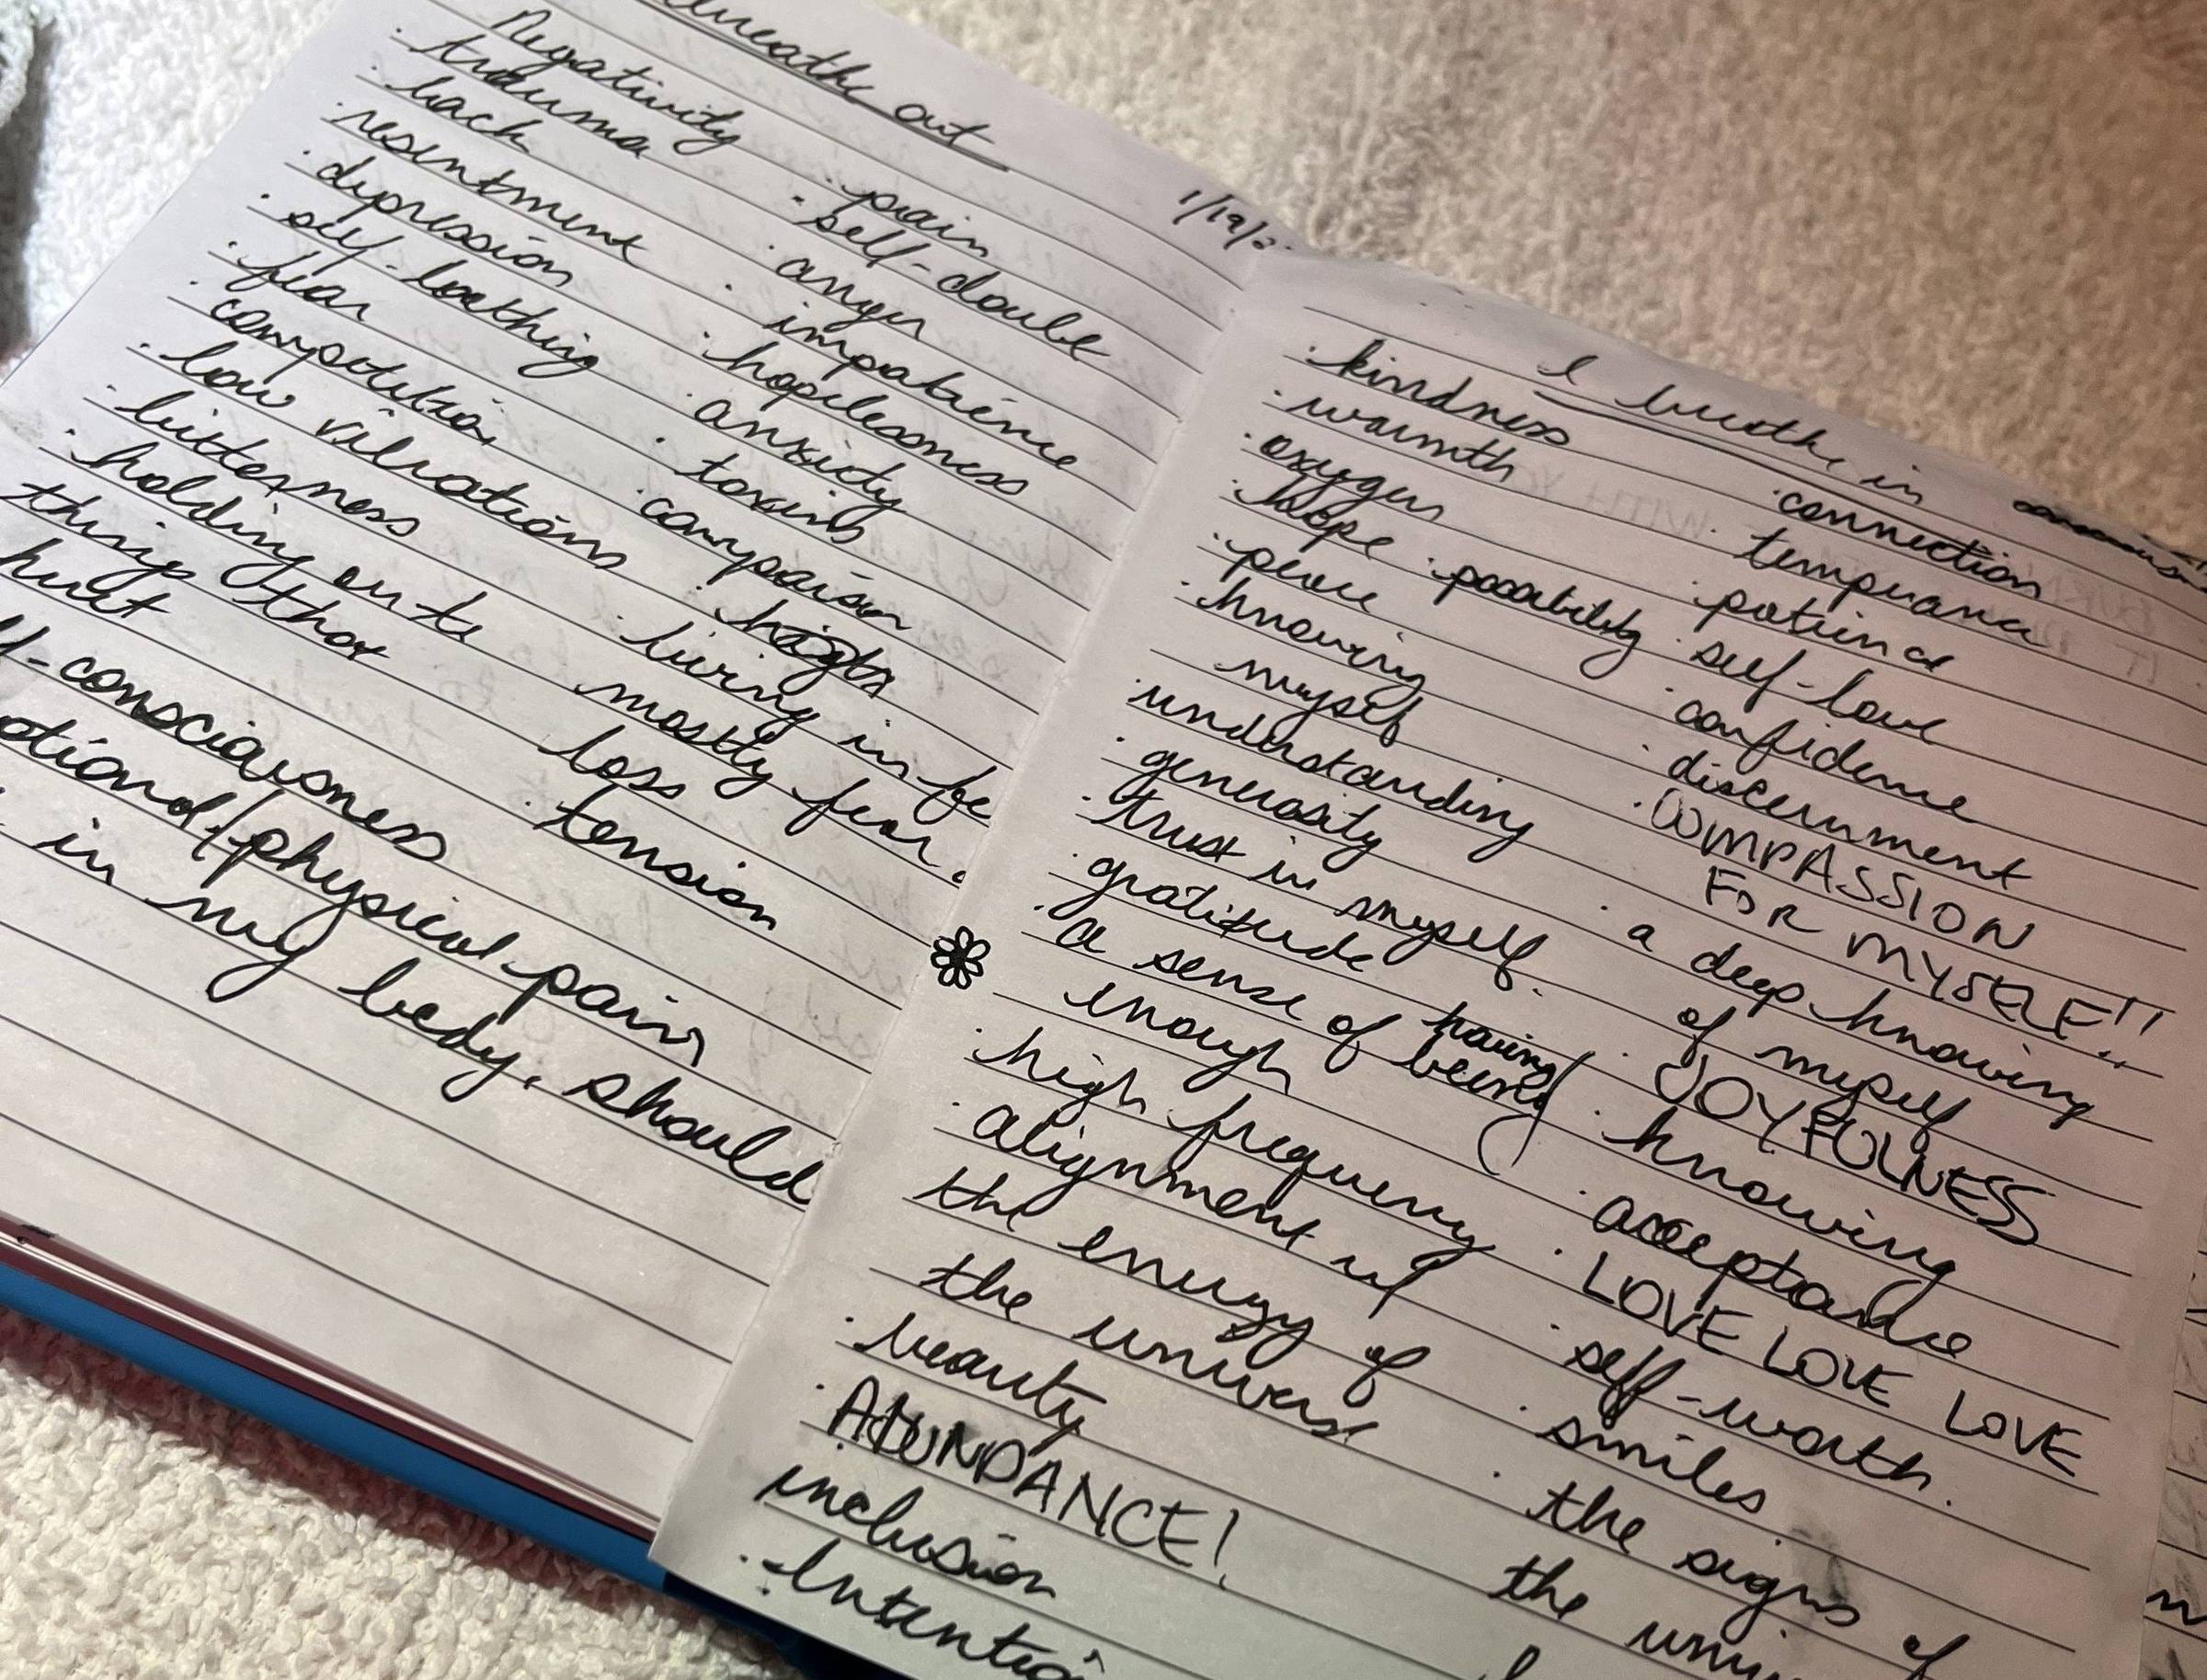 breathe out
Negativity
· trauma
· lack
· resentment
· depression
· self-loathing
· fear
· competition
· low vibrations
· bitterness
· holding on to
things that
hurt
-consciousness
/physical pain
in my body, should
· pain
· self-doubt
· anger
· impatience
· hopelessness
· anxiety
· toxins
· comparison
· living in fe
mostly fear.
loss
· tension
1/19/2
I breathe in
· kindness
· warmth
· oxygen
· hope · possibility
· peace
· knowing
myself
· understanding
· generosity
· trust in myself.
· gratitude
· a sense of having/
being
enough
· high frequency
· alignment w/
the energy of
the universe
· beauty
· ABUNDANCE!
· inclusion
· Intentio
· connection
· temperance
· patience
· self-love
· confidence
· discernment
· COMPASSION
FOR MYSELF!!
· a deep knowing
of myself
· JOYFULNESS
· knowing
· acceptance
· LOVE LOVE LOVE
· self-worth.
· smiles
· the signs of
the univ